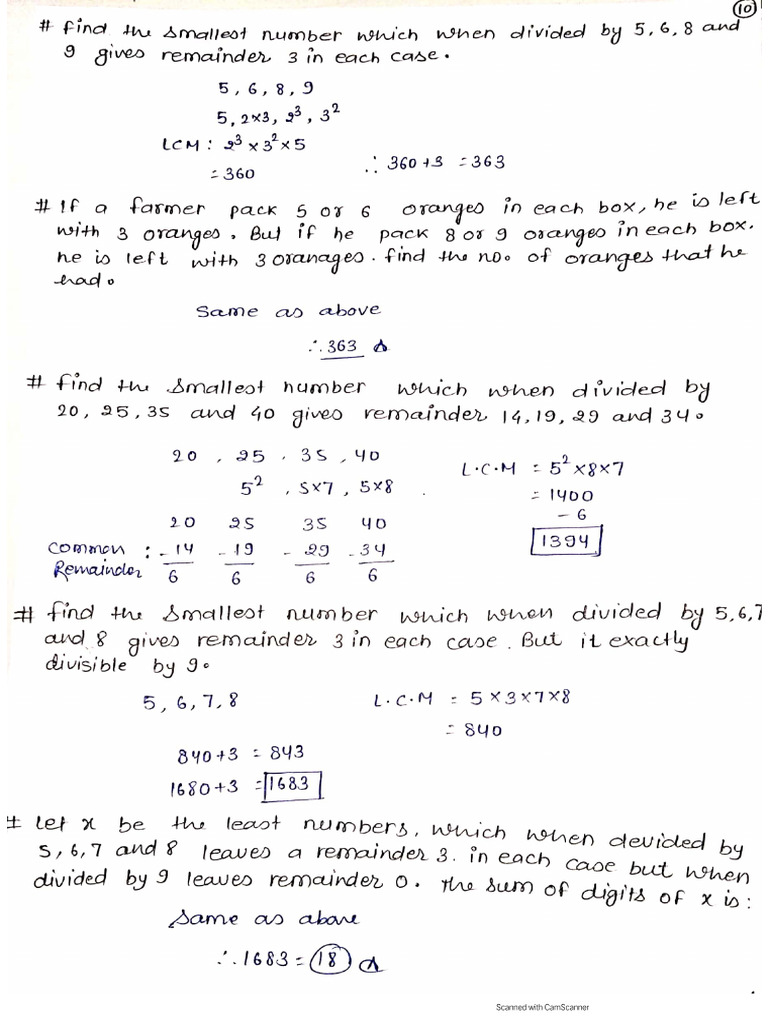 10
# find the smallest number which when divided by 5, 6, 8 and
9 gives remainder 3 in each case.
5, 6, 8, 9
5, 2×3, 2³, 3²
LCM : 2³ × 3² × 5
= 360
∴ 360+3 = 363
# If a farmer pack 5 or 6 oranges in each box, he is left
with 3 oranges. But if he pack 8 or 9 oranges in each box.
he is left with 3 oranages. find the no. of oranges that he
had.
Same as above
∴ 363
# find the smallest number which when divided by
20, 25, 35 and 40 gives remainder 14, 19, 29 and 34.
20, 25, 35, 40
5², 5×7, 5×8
L.C.M = 5² × 8 × 7
= 1400
- 6
1394
20 25 35 40
Common : -14 -19 -29 -34
Remainder 6 6 6 6
# find the smallest number which when divided by 5,6,7
and 8 gives remainder 3 in each case. But it exactly
divisible by 9.
5, 6, 7, 8
L.C.M = 5 × 3 × 7 × 8
= 840
840+3 = 843
1680+3 = 1683
# Let x be the least numbers, which when devided by
5, 6, 7 and 8 leaves a remainder 3. in each case but when
divided by 9 leaves remainder 0. The sum of digits of x is:
Same as above
∴ 1683 = 18
Scanned with CamScanner